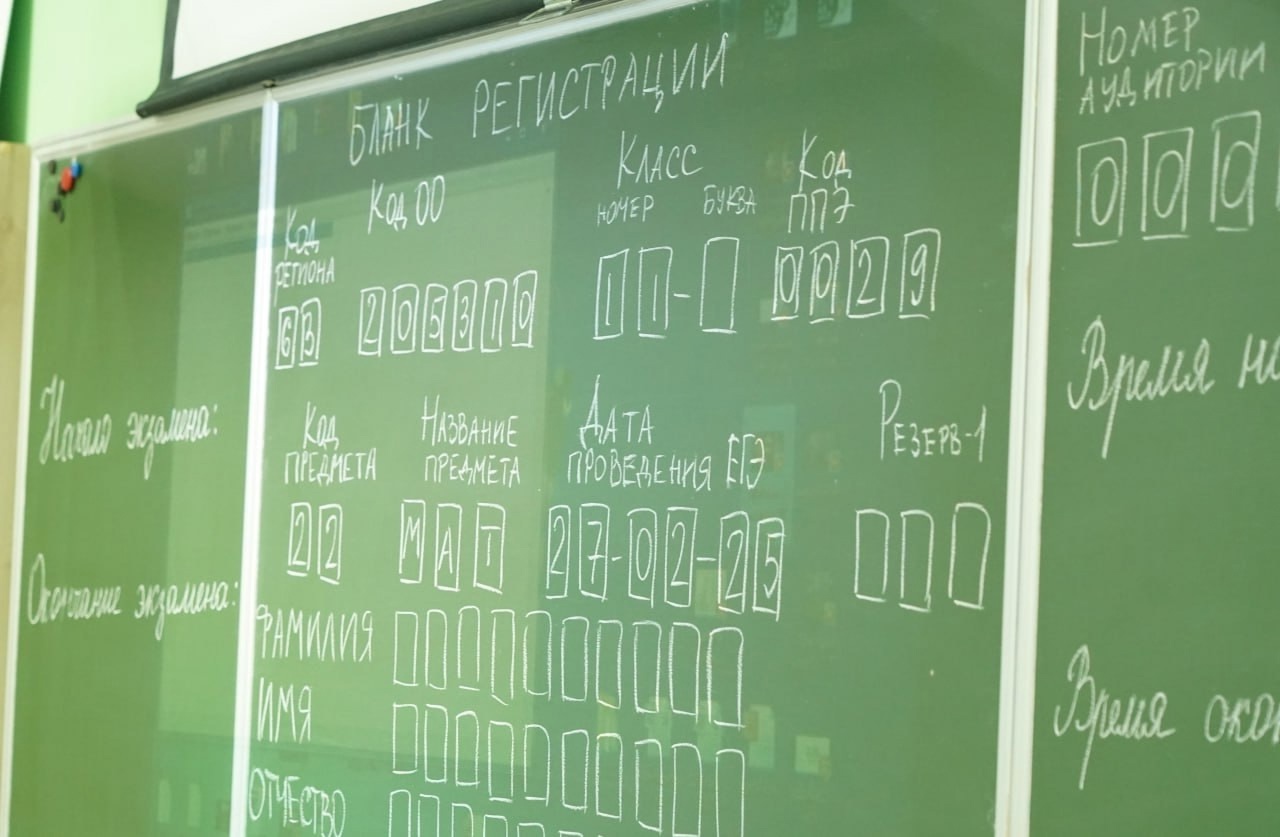 Начало экзамена:
Окончание экзамена:
БЛАНК РЕГИСТРАЦИИ
Код РЕГИОНА
63
Код ОО
205310
КЛАСС
НОМЕР БУКВА
11-
Код ППЭ
0029
Код ПРЕДМЕТА
22
НАЗВАНИЕ ПРЕДМЕТА
МАТ
ДАТА ПРОВЕДЕНИЯ ЕГЭ
27-02-25
РЕЗЕРВ-1
ФАМИЛИЯ
ИМЯ
ОТЧЕСТВО
НОМЕР
АУДИТОРИИ
000
Время
Время